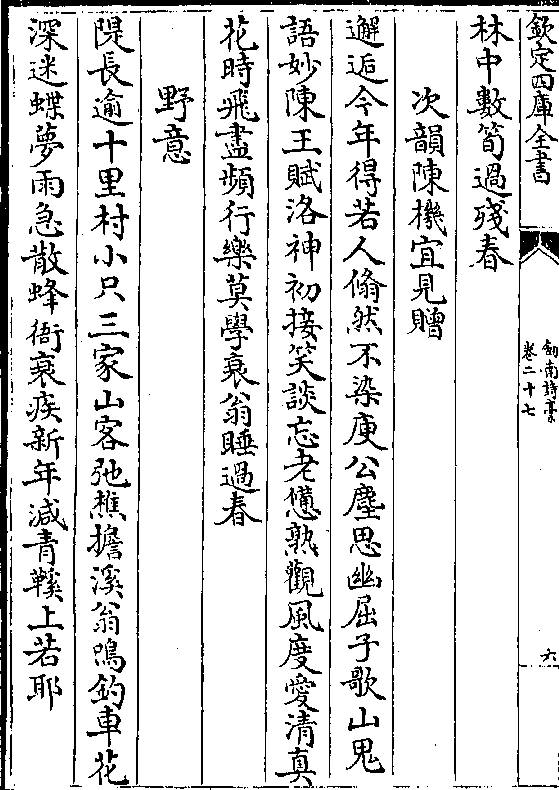 欽定四庫全書
劎南詩稾
卷二十七
六
林中數筍過殘春
次韻陳機宜見贈
邂逅今年得若人翛然不染庾公塵思幽屈子歌山鬼
語妙陳王賦洛神初接笑談忘老憊熟觀風度愛清真
花時飛盡頻行樂莫學衰翁睡過春
野意
隄長逾十里村小只三家山客弛樵擔溪翁鳴釣車花
深迷蝶夢雨急散蜂衙衰疾新年減青鞵上若耶